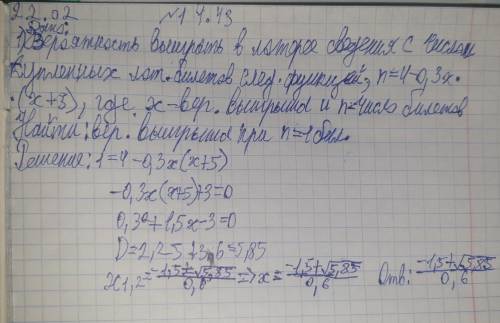 22.02
№14.43
Дано:
1) Вероятность выиграть в лотерее сведения с числом
купленных лот. билетов след. функцией, n=4-0,3x·
·(x+3), где x-вер. выигрыша и n=число билетов
Найти: вер. выигрыша при n=1бил.
Решение: 1=4-0,3x(x+5)
-0,3x(x+5)+3=0
0,3²+1,5x-3=0
D=2,25+3,6=5,85
x1,2=(-1,5±√5,85)/0,6 => x=(-1,5+√5,85)/0,6 Отв: (-1,5+√5,85)/0,6